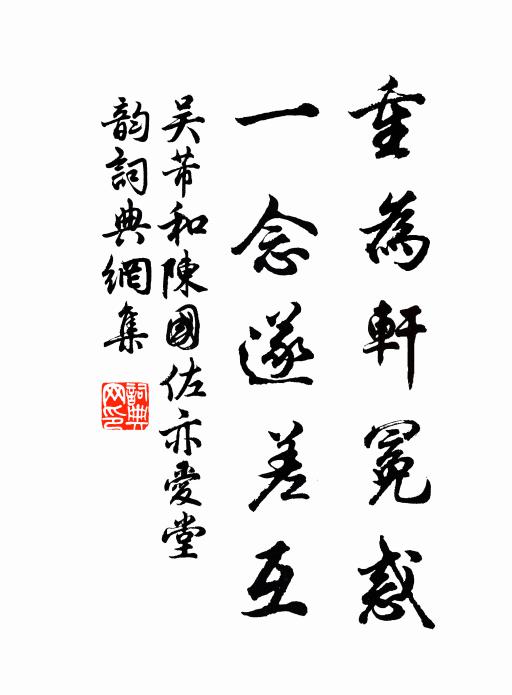 重為軒冕惑
一念遂差互
吴芾和陳國佐亦愛堂
韵詞典網集
詞典网印